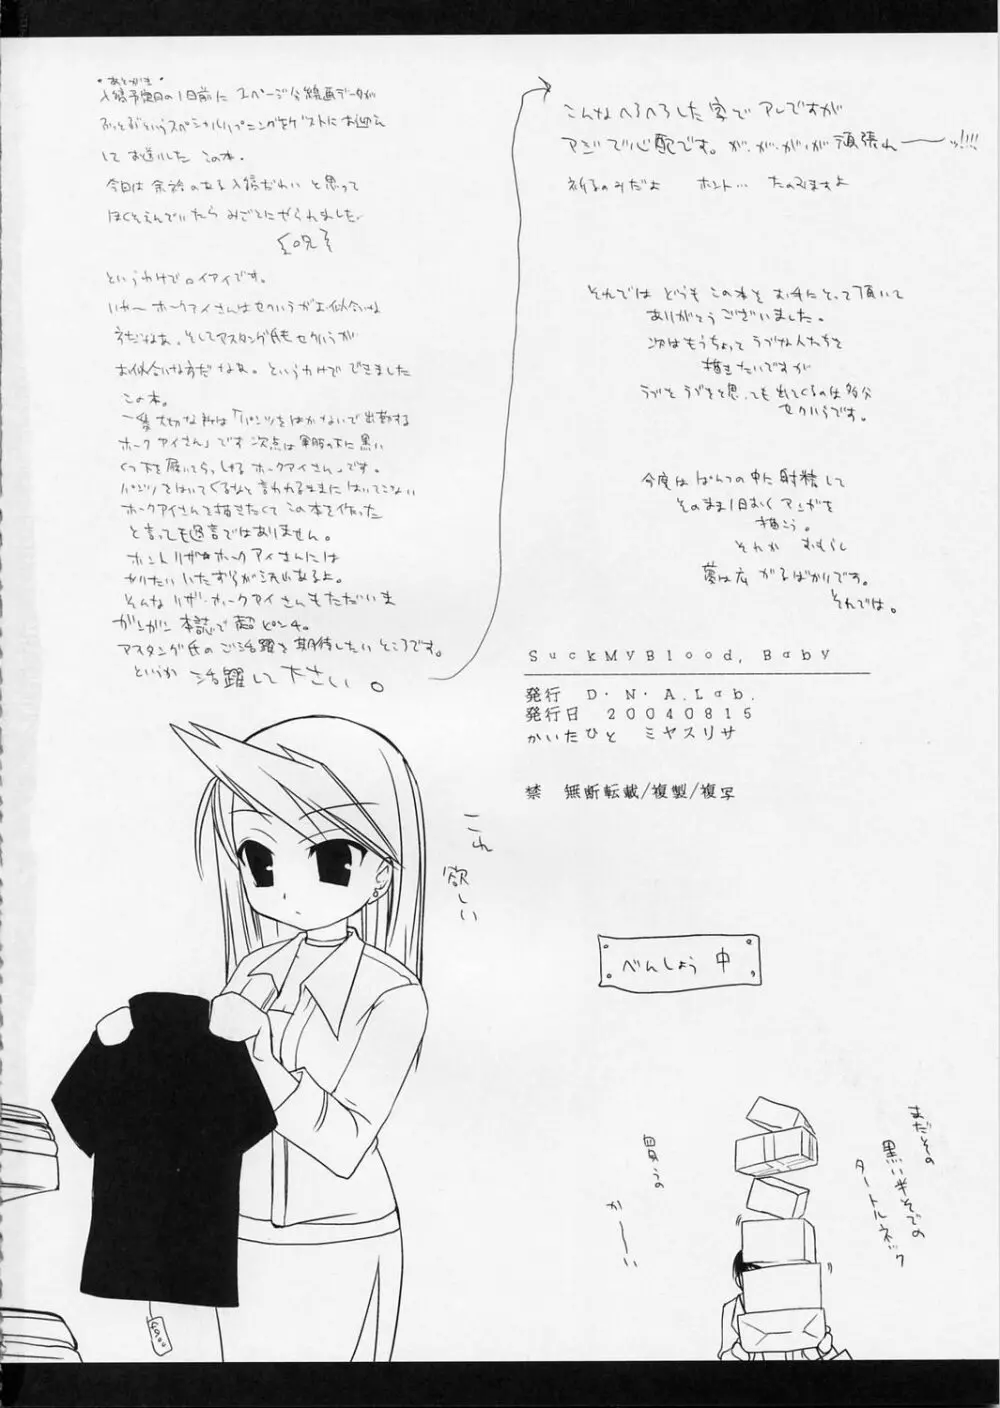 ・あとがき・
入稿予定日の1日前に2ページ分線画データが
ぶっとぶというスペシャルハプニングをゲストにお迎え
してお送りしたこの本。
今回は余裕のある入稿だわいと思って
ほくそえんでいたらみごとにやられました
というわけでロイアイです。
いや〜ホークアイさんはセクハラがお似合いな
方だなあ。そしてマスタング氏もセクハラが
お似合いな方だなあ。というわけでできました
この本。
一番大切な所は「パンツをはかないで出勤する
ホークアイさん」です次点は軍服の下に黒い
くつ下を履いてらっしゃるホークアイさん」です。
パンツをはいてくるなと言われるままにはいてこない
ホークアイさんを描きたくてこの本を作った
と言っても過言ではありません。
ホントリザ・ホークアイさんには
やりたいいたずらが沢山あるよ。
そんなリザ・ホークアイさんもただいま
ガンガン本誌で超ピンチ。
マスタング氏のご活躍を期待したいところです。
というか 活躍して下さい。
こんなへろへろした字でアレですが
マジで心配です。が、が、が、が頑張れ――ッ!!!!
祈るのみだよ ホント… たのみますよ
それではどうもこの本をお手にとって頂いて
ありがとうございました。
次はもうちょってラブな人たちを
描きたいですが
ラブをラブをと思っても出てくるのは多分
セクハラです。
今度はぱんつの中に射精して
そのまま1日おくマンガを
描こう。
それか おもらし
夢は広がるばかりです。
それでは。
SuckMyBlood, Baby
発行 D・N・A.Lab.
発行日 20040815
かいたひと ミヤスリサ
禁 無断転載/複製/複写
これ
欲しい
べんしょう中
まだその
黒い半そでの
タートルネック
買うの
か――い